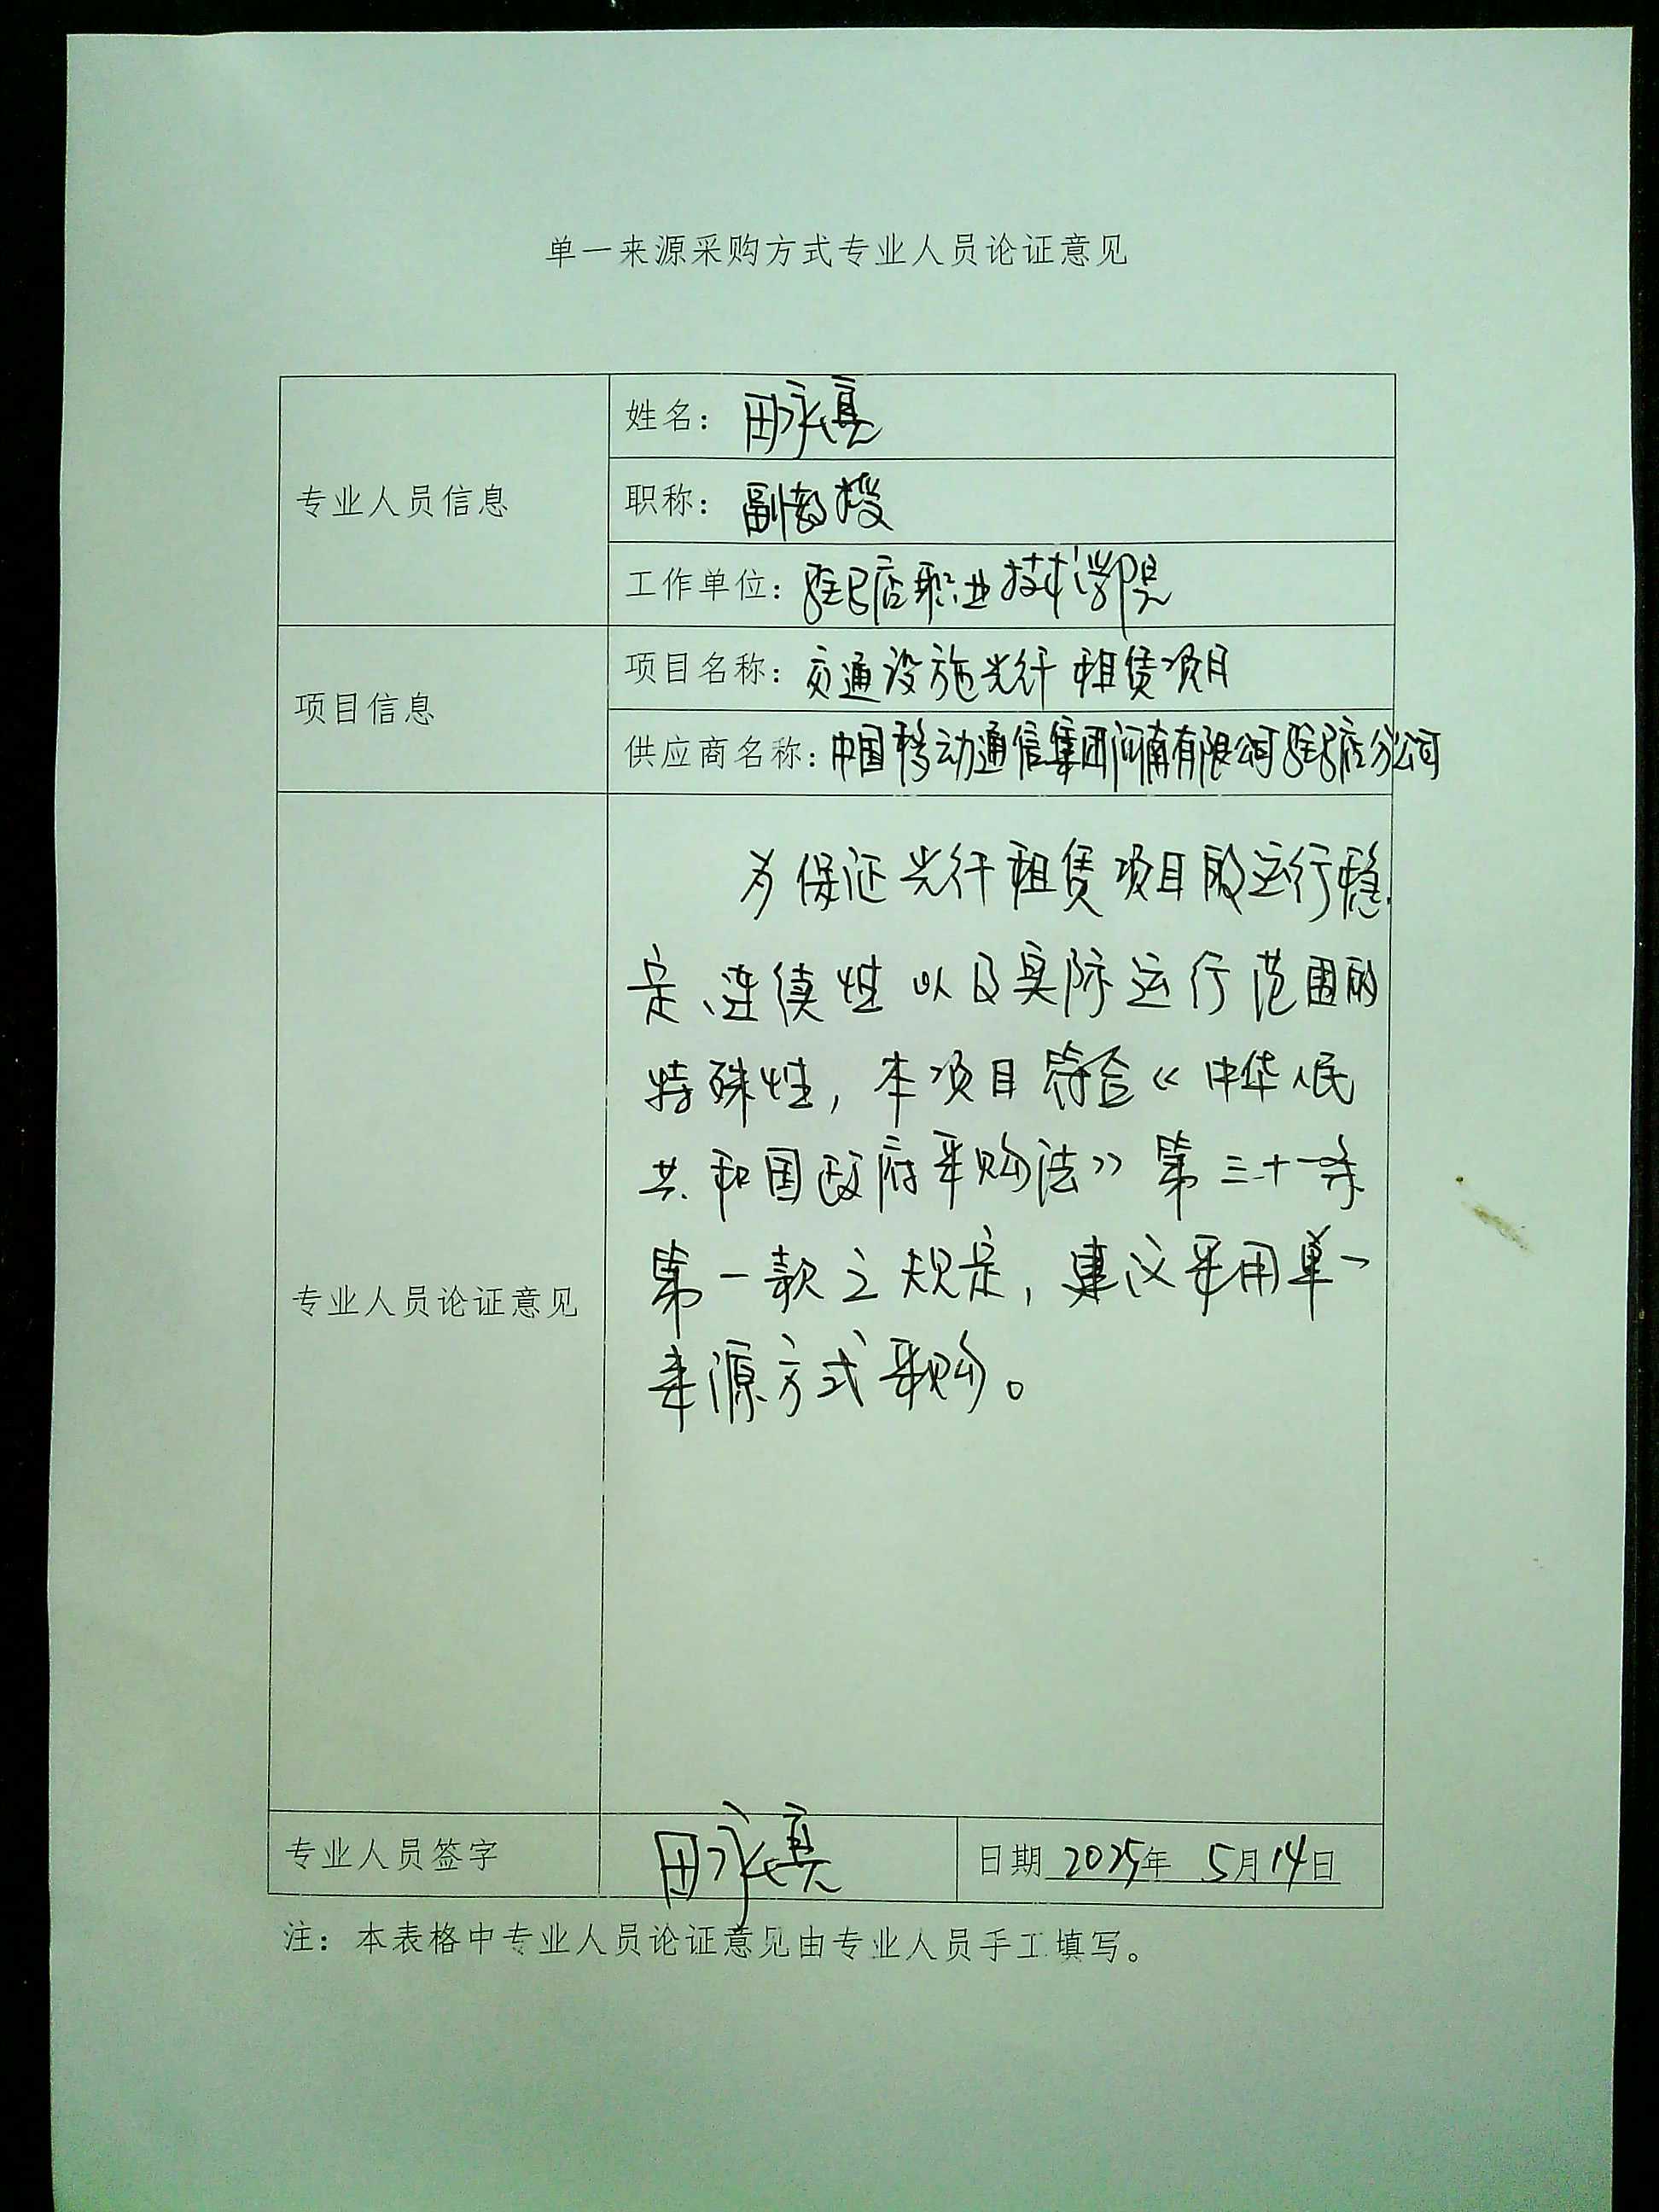 单一来源采购方式专业人员论证意见
专业人员信息
姓名：田永真
职称：副教授
工作单位：驻马店职业技术学院
项目信息
项目名称：交通设施光纤租赁项目
供应商名称：中国移动通信集团河南有限公司驻马店分公司
专业人员论证意见
为保证光纤租赁项目的运行稳
定、连续性以及实际运行范围的
特殊性，本项目符合《中华人民
共和国政府采购法》第三十一条
第一款之规定，建议采用单一
来源方式采购。
专业人员签字
田永真
日期 2025年 5月14日
注：本表格中专业人员论证意见由专业人员手工填写。